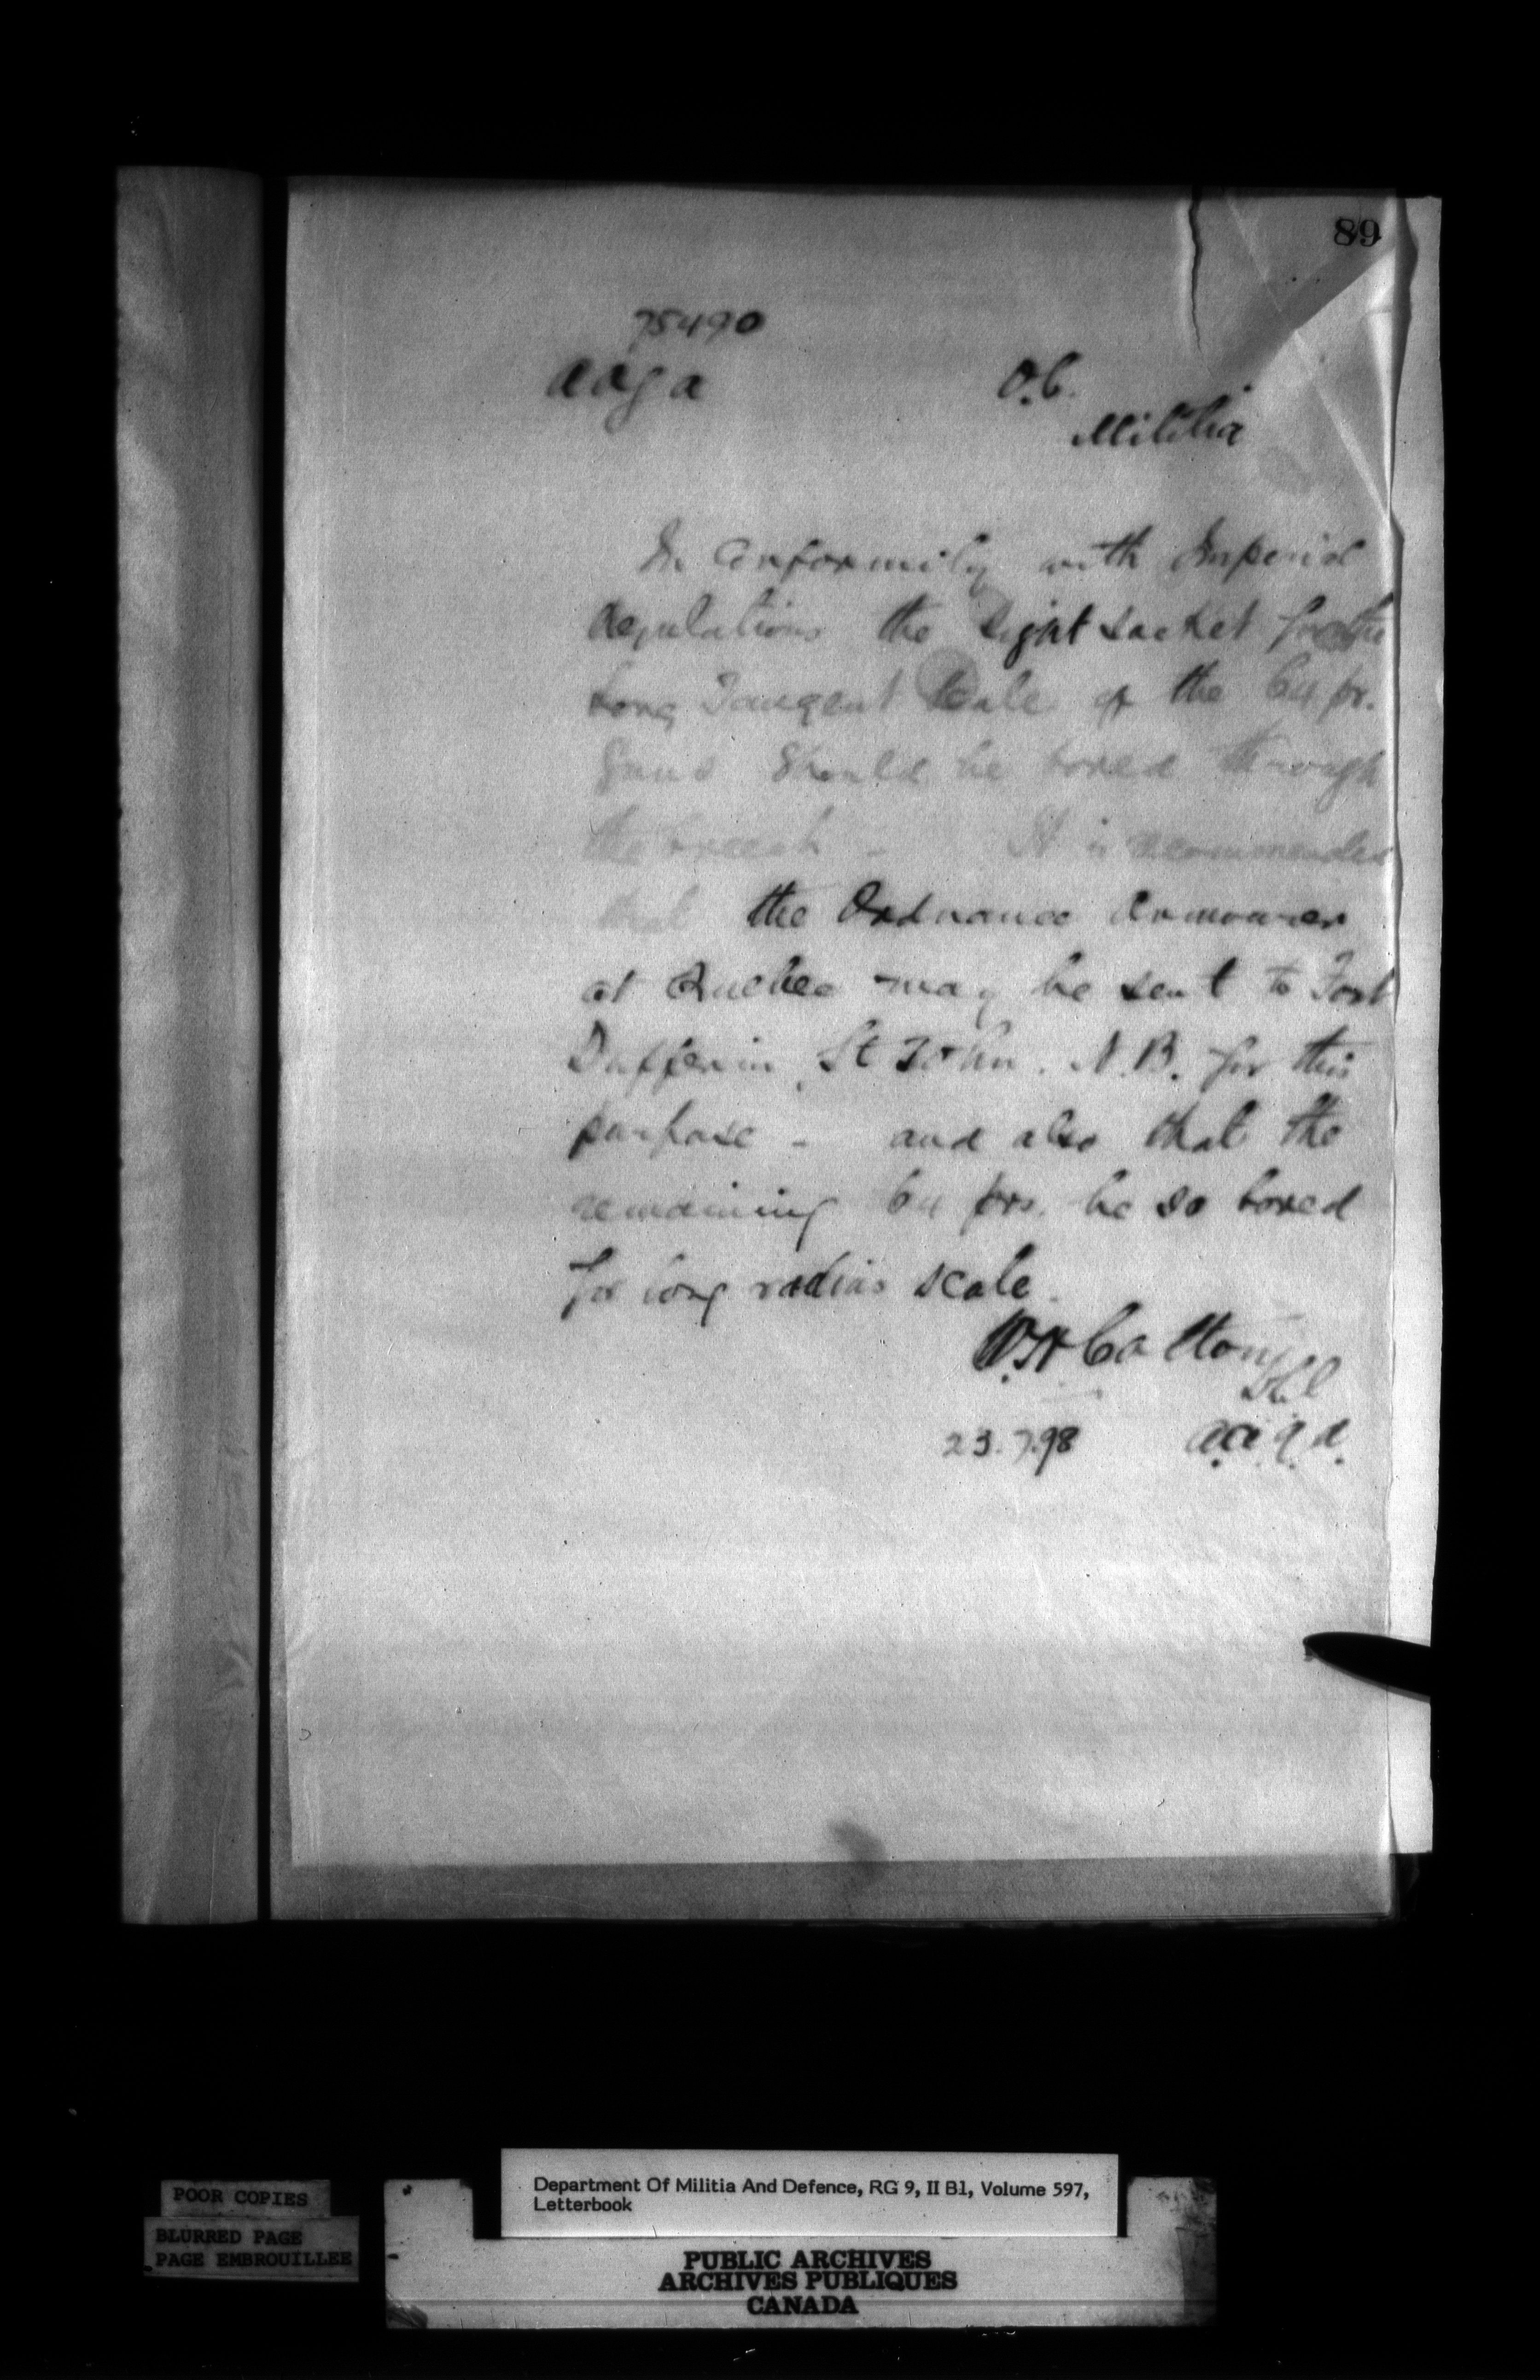 89
75490
AAG a
O.C.
Militia
In Conformity with Imperial
Regulations the sight socket for the
Long Tangent Scale of the 64 pr.
Guns should be bored through
the breech - It is recommended
that the Ordnance Armourer
at Quebec may be sent to Fort
Dufferin, St John. N.B. for this
purpose - and also that the
remaining 64 prs. be so bored
for long radius scale.
W.H. Cotton
23.7.98
POOR COPIES
BLURRED PAGE
PAGE EMBROUILLEE
Department Of Militia And Defence, RG 9, II B1, Volume 597,
Letterbook
PUBLIC ARCHIVES
ARCHIVES PUBLIQUES
CANADA